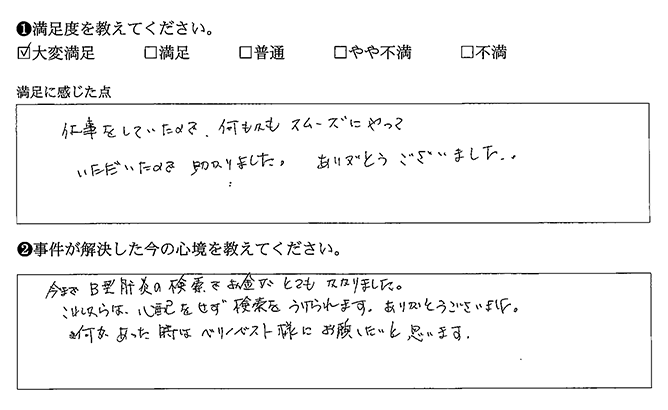 ❶満足度を教えてください。
☑大変満足 □満足 □普通 □やや不満 □不満
満足に感じた点
仕事をしていたので、何もかも スムーズにやって
いただいたので 助かりました。 ありがとう ございました。
❷事件が解決した今の心境を教えてください。
今まで B型肝炎の検索で お金が とても かかりました。
これからは、心配をせず 検索を うけられます。ありがとうございました。
何か あった 時は ベリーベスト 様に お願いしたいと 思います。